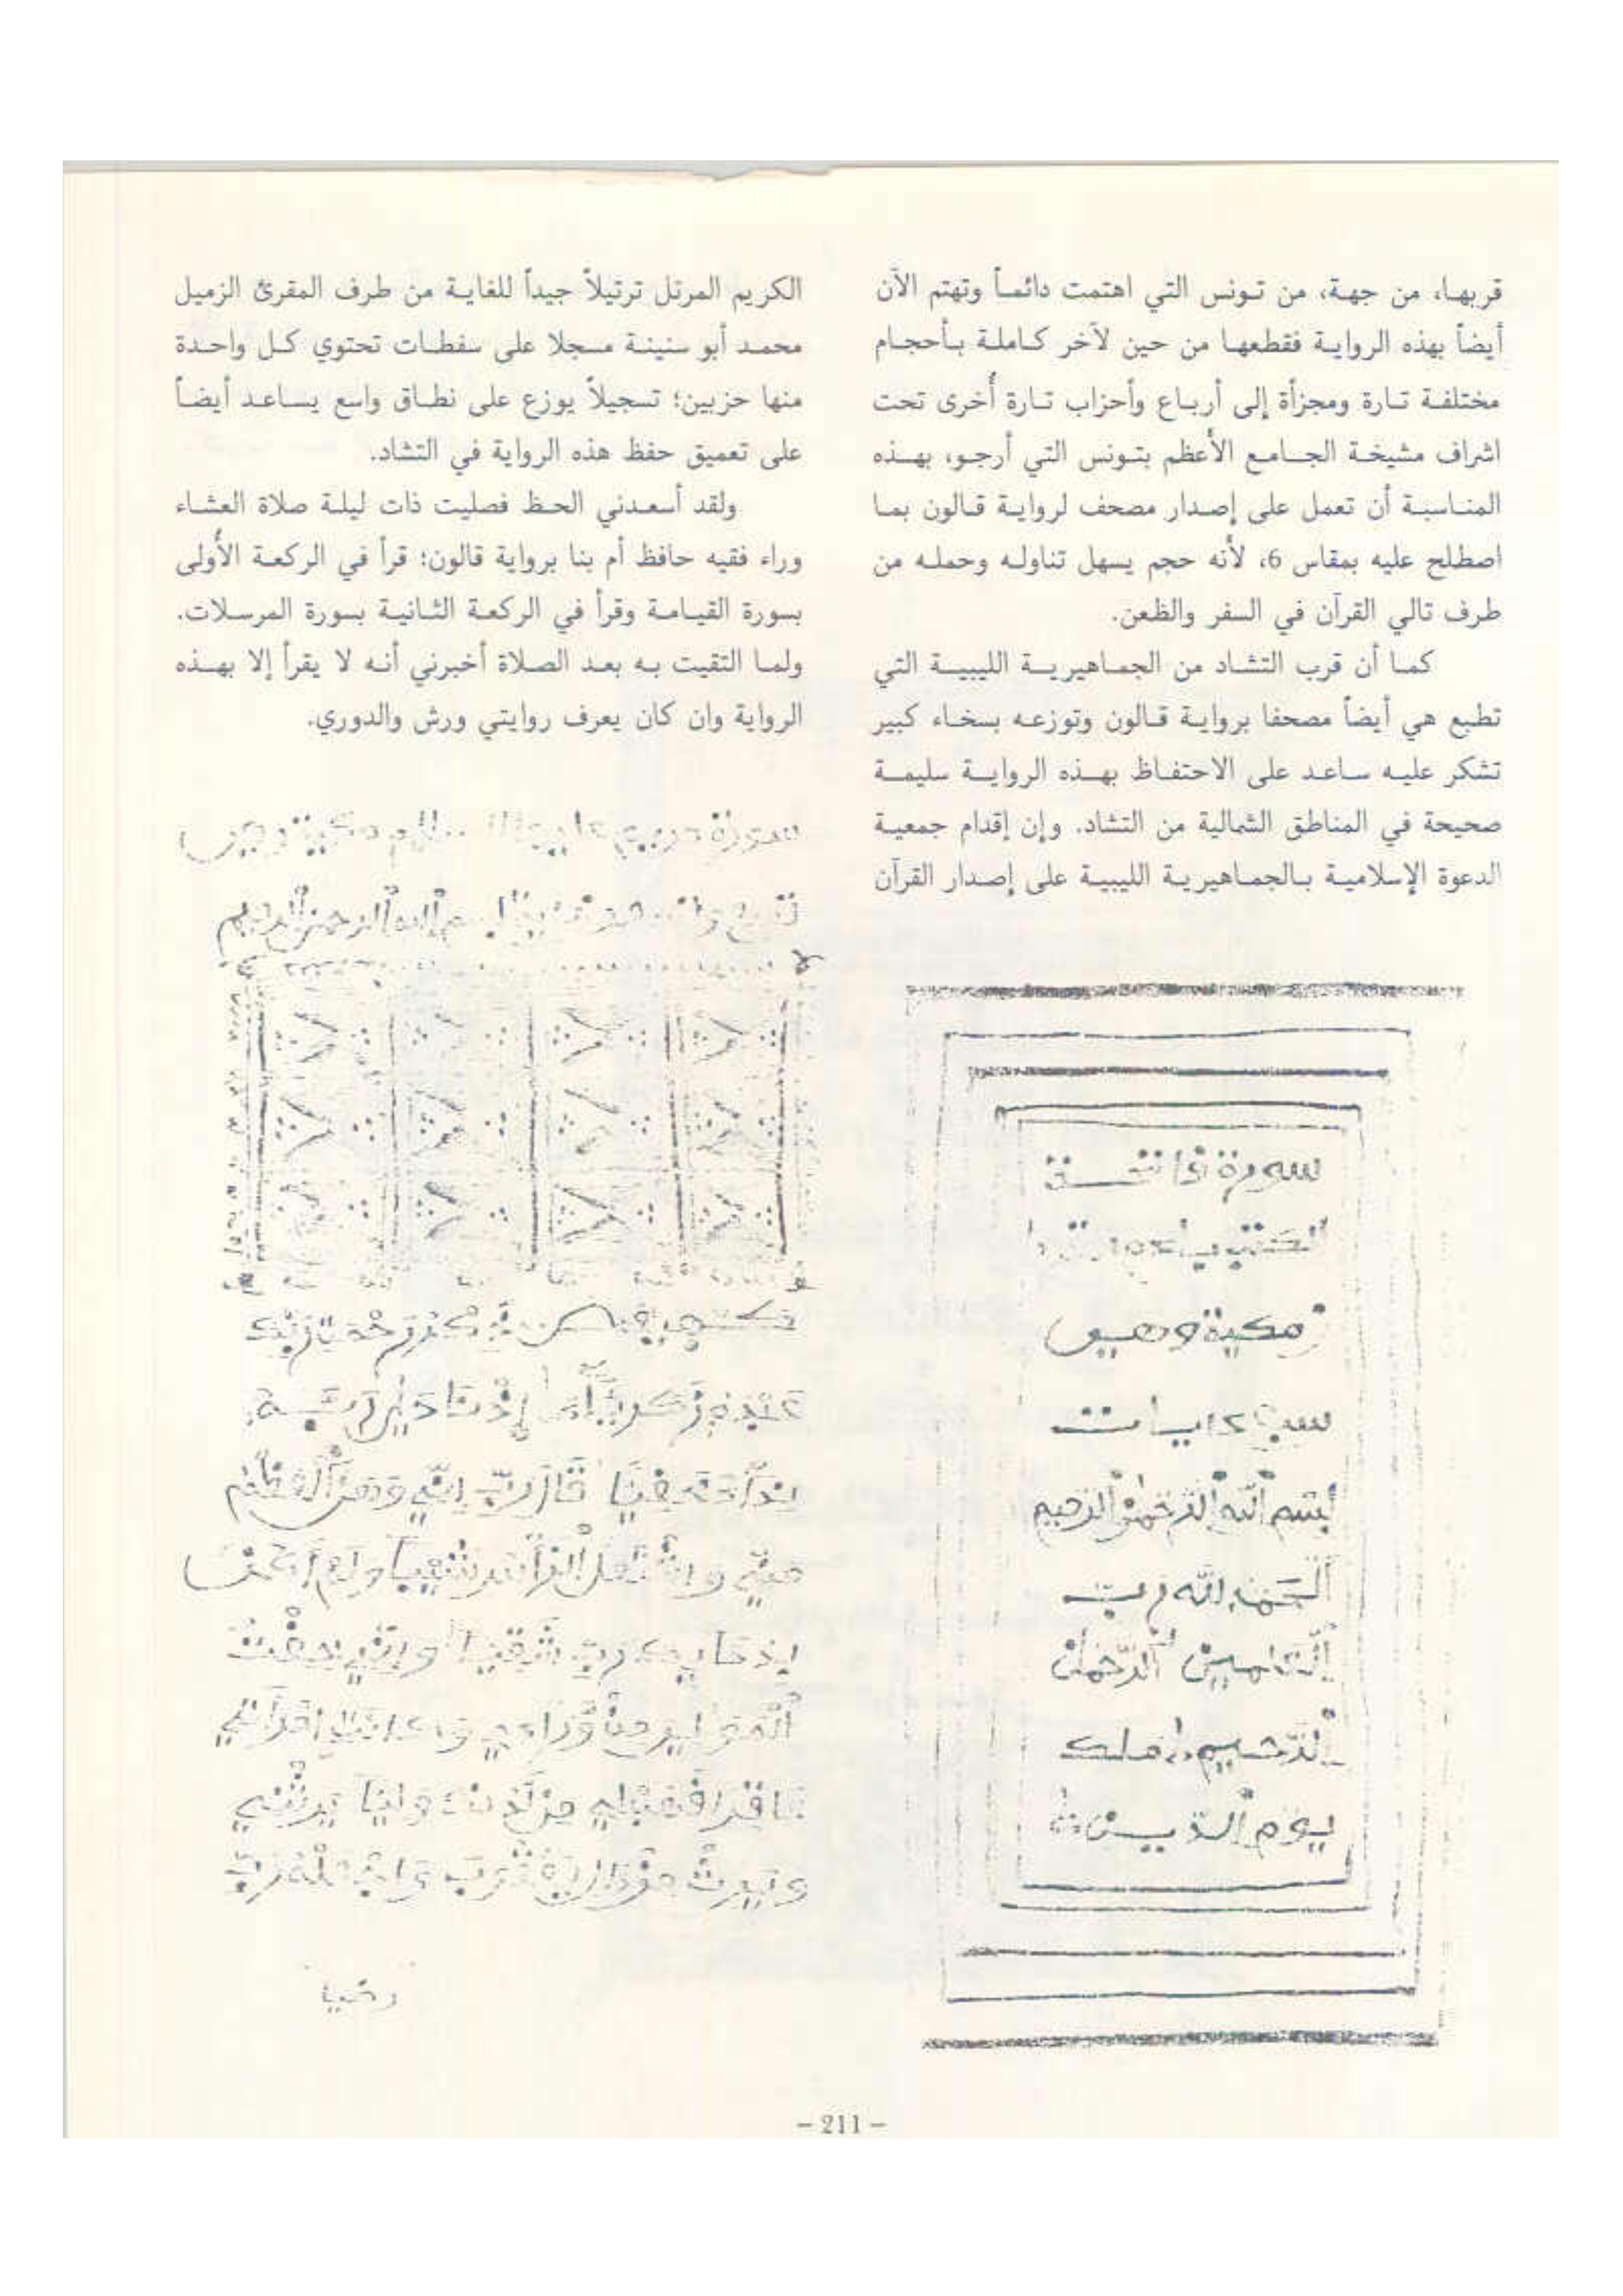 قربها، من جهة، من تونس التي اهتمت دائماً وتهتم الآن
أيضاً بهذه الرواية فقطعها من حين لآخر كاملة بأحجام
مختلفة تارة ومجزأة إلى أرباع وأحزاب تارة أُخرى تحت
اشراف مشيخة الجامع الأعظم بتونس التي أرجو، بهذه
المناسبة أن تعمل على إصدار مصحف لرواية قالون بما
اصطلح عليه بمقاس 6، لأنه حجم يسهل تناوله وحمله من
طرف تالي القرآن في السفر والظعن.
كما أن قرب التشاد من الجماهيرية الليبية التي
تطبع هي أيضاً مصحفا برواية قالون وتوزعه بسخاء كبير
تشكر عليه ساعد على الاحتفاظ بهذه الرواية سليمة
صحيحة في المناطق الشمالية من التشاد. وإن إقدام جمعية
الدعوة الإسلامية بالجماهيرية الليبية على إصدار القرآن
الكريم المرتل ترتيلاً جيداً للغاية من طرف المقرئ الزميل
محمد أبو سنينة مسجلا على سفطات تحتوي كل واحدة
منها حزبين؛ تسجيلاً يوزع على نطاق واسع يساعد أيضاً
على تعميق حفظ هذه الرواية في التشاد.
ولقد أسعدني الحظ فصليت ذات ليلة صلاة العشاء
وراء فقيه حافظ أم بنا برواية قالون؛ قرأ في الركعة الأولى
بسورة القيامة وقرأ في الركعة الثانية بسورة المرسلات.
ولما التقيت به بعد الصلاة أخبرني أنه لا يقرأ إلا بهذه
الرواية وان كان يعرف روايتي ورش والدوري.
سورة
مكية وهي
سبع
بسم الله الرحمن الرحيم
الحمد لله رب
العلمين الرحمن
الرحيم ملك
يوم الدين
سورة مريم عليها السلام مكية وهي
الله الرحمن الرحيم
ذكر رحمت ربك
عبده زكريا إذ نادى ربه
نداء خفيا قال رب إني وهن العظم
مني واشتعل الرأس شيبا ولم أكن
بدعايك رب شقيا وإني خفت
الموالي من وراءي وكانت امرأتي
عاقرا فهب لي من لدنك وليا يرثني
ويرث من ءال يعقوب واجعله رب
رضيا
– 211 –